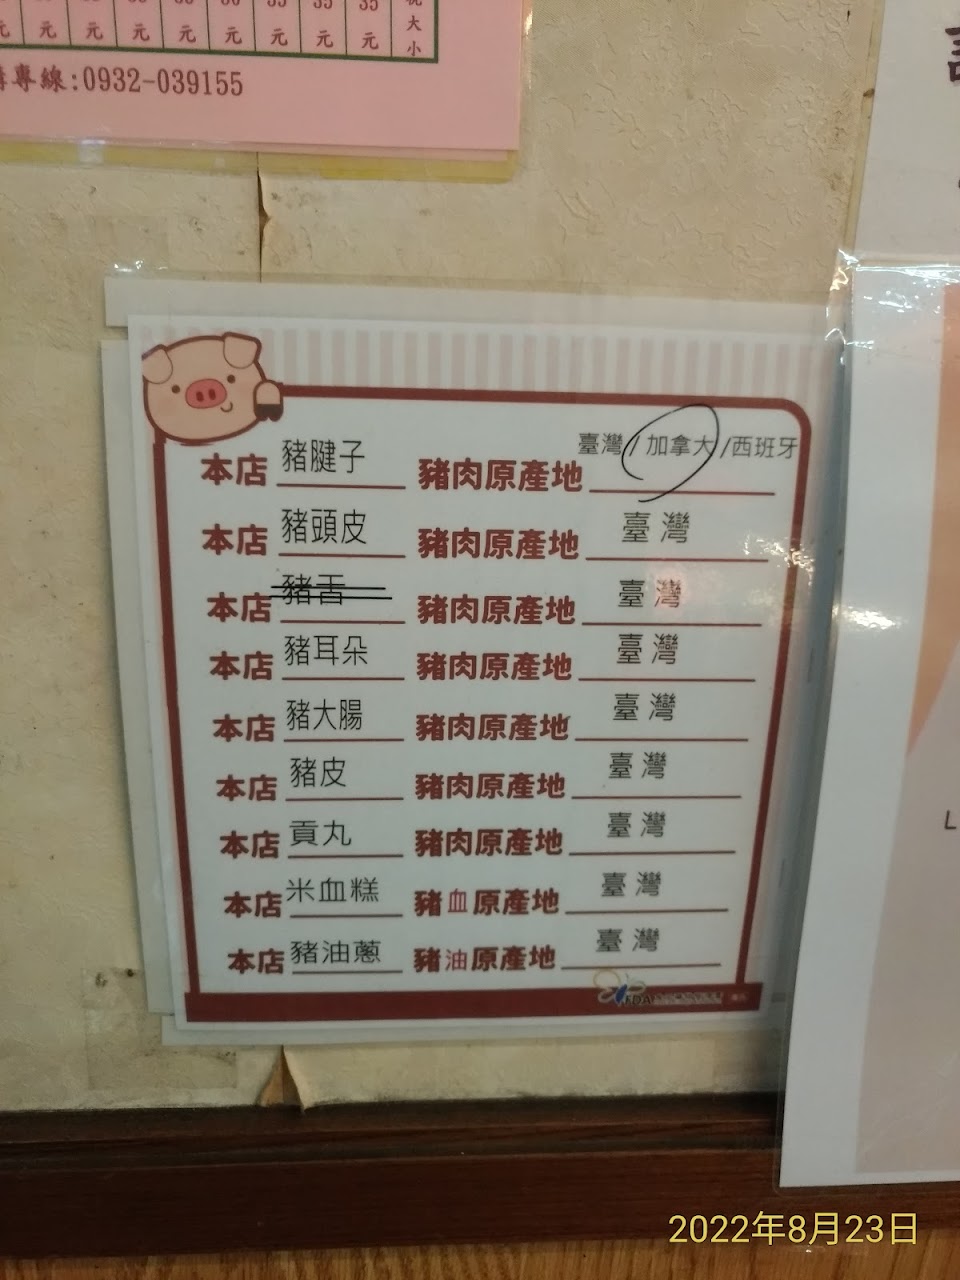 35 35 35
元 元 元 元 元 元 元 元 大
小
專線:0932-039155
臺灣/加拿大/西班牙
本店 豬腱子 豬肉原產地
本店 豬頭皮 豬肉原產地 臺灣
本店 豬舌 豬肉原產地 臺灣
本店 豬耳朵 豬肉原產地 臺灣
本店 豬大腸 豬肉原產地 臺灣
本店 豬皮 豬肉原產地 臺灣
本店 貢丸 豬肉原產地 臺灣
本店 米血糕 豬血原產地 臺灣
本店 豬油蔥 豬油原產地 臺灣
FDA
L
2022年8月23日